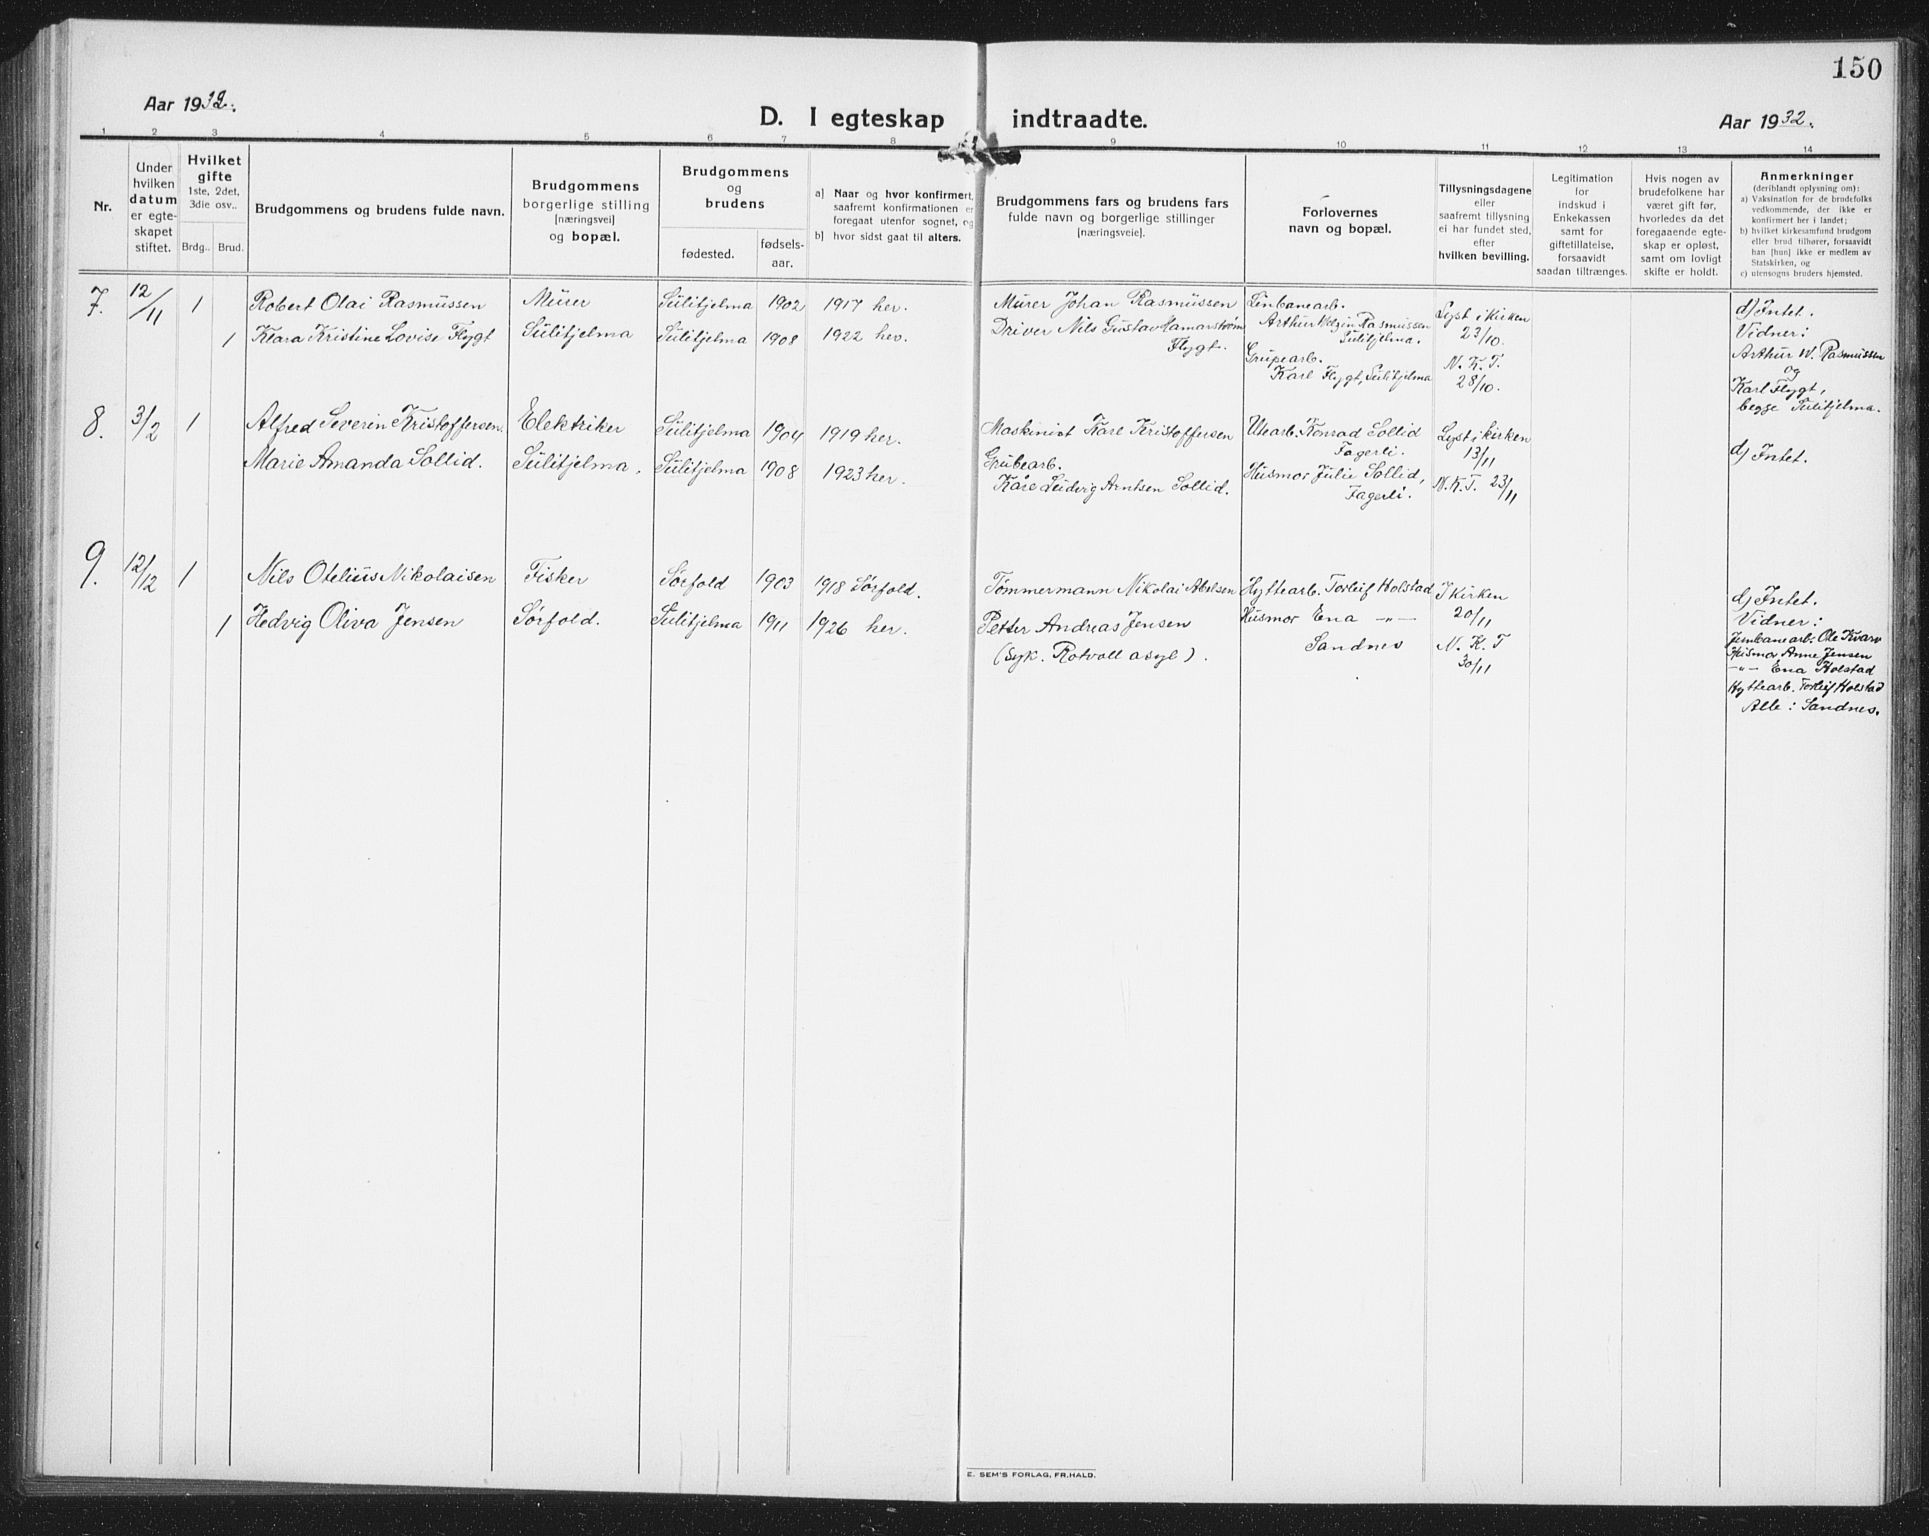 150
Aar 1932.
D. I egteskap indtraadte.
Aar 1932.
1 2 3 4 5 6 7 8 9 10 11 12 13 14
Nr.
Under hvilken datum er egte-skapet stiftet.
Hvilket gifte
1ste, 2det, 3die osv..
Brdg.. Brud.
Brudgommens og brudens fulde navn.
Brudgommens borgerlige stilling [næringsvei] og bopæl.
Brudgommens og brudens
fødested.
fødsels-aar.
a) Naar og hvor konfirmert, saafremt konfirmationen er foregaat utenfor sognet, og
b) hvor sidst gaat til alters.
Brudgommens fars og brudens fars fulde navn og borgerlige stillinger [næringsveie].
Forlovernes navn og bopæl.
Tillysningsdagene eller saafremt tillysning ei har fundet sted, efter hvilken bevilling.
Legitimation for indskud i Enkekassen samt for giftetillatelse, forsaavidt saadan tiltrænges.
Hvis nogen av brudefolkene har været gift før, hvorledes da det foregaaende egte-skap er opløst, samt om lovligt skifte er holdt.
Anmerkninger
(deriblandt oplysning om):
a) Vaksination for de brudefolks vedkommende, der ikke er konfirmert her i landet;
b) hvilket kirkesamfund brudgom eller brud tilhører, forsaavidt han [hun] ikke er medlem av Statskirken, og
c) utensogns bruders hjemsted.
7. 12/11 1 Robert Olai Rasmussen Murer Sulitjelma 1902 1917 her. Murer Johan Rasmussen Linbanearb. Lyst i Kirken d) Intet.
1 Klara Kristine Lovise Flygt Sulitjelma Sulitjelma 1908 1922 her. Driver Nils Gustav Hamarstrøm Arthur Rasmussen 23/10. Vidner:
Flygt. Sulitjelma. Arthur W. Rasmussen
Grupearb. N. K. T. og
Karl Flygt, Sulitjelma 28/10. Karl Flygt,
begge Sulitjelma.
8. 3/2 1 Alfred Severin Kristoffersen. Elektriker Sulitjelma 1904 1919 her. Maskinist Karl Kristoffersen Utearb. Konrad Sollid Lyst i Kirken
Fagerli. 13/11 d) Intet.
Marie Amanda Sollid. Sulitjelma. Sulitjelma 1908 1923 her. Grubearb. Husmor Julie Sollid, N. K. T. 23/11
Kåre Ludvig Arntsen Sollid. Fagerli.
9. 12/12 1 Nils Otelius Nikolaisen Fisker Sørfold 1903 1918 Sørfold. Tømmermann Nikolai Abelsen Hyttearb. Torleif Holstad I Kirken d) Intet.
1 Hedvig Oliva Jensen Sørfold. Sulitjelma 1911 1926 her. Petter Andreas Jensen Husmor Ena -"- 20/11 Vidner:
(Syk. Rotvoll asyl). Sandnes N. K. T 30/11 Jernbanearb. Ole Kvarv
Husmor Anne Jensen
-"- Ena Holstad
Hyttearb. Torleif Holstad
Alle: Sandnes.
E. SEM'S FORLAG, FR.HALD.